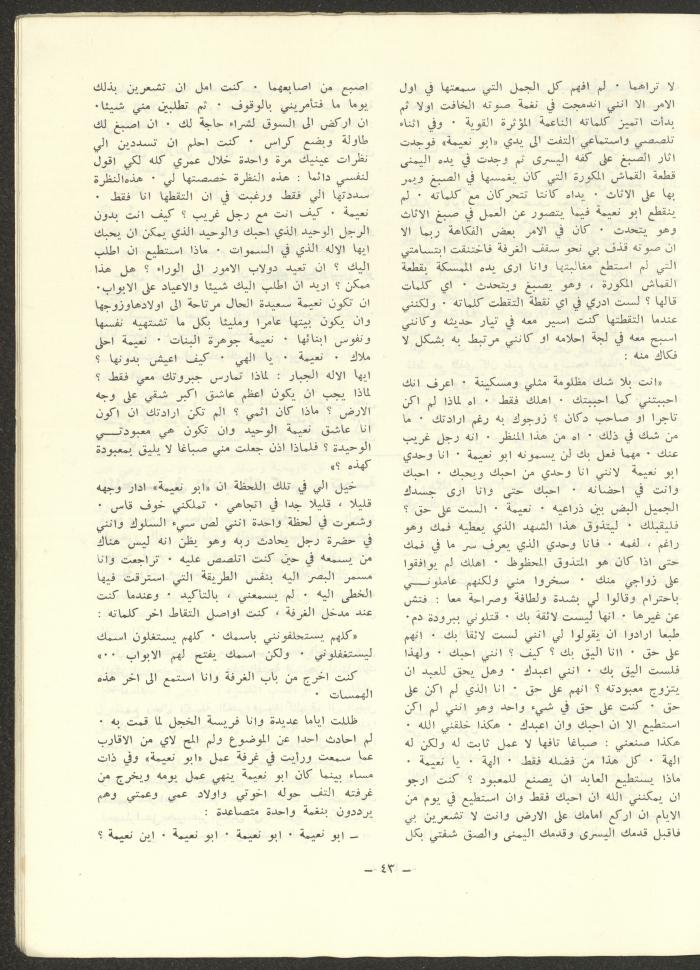 لا تراهما ٠ لم افهم كل الجمل التي سمعتها في اول
الامر الا انني اندمجت في نغمة صوته الخافت اولا ثم
بدأت اتميز كلماته الناعمة المؤثرة القوية ٠ وفي اثناء
تلصصي واستماعي التفت الى يدي «ابو نعيمة» فوجدت
اثار الصبغ على كفه اليسرى ثم وجدت في يده اليمنى
قطعة القماش المكورة التي كان يغمسها في الصبغ ويمر
بها على الاثاث ٠ يداه كانتا تتحركان مع كلماته ٠ لم
ينقطع ابو نعيمة فيما يتصور عن العمل في صبغ الاثاث
وهو يتحدث ٠ كان في الامر بعض الفكاهة ربما الا
ان صوته قذف بي نحو سقف الغرفة فاختنقت ابتسامتي
التي لم استطع مغالبتها وانا ارى يده الممسكة بقطعة
القماش المكورة ، وهو يصبغ ويتحدث ٠ اي كلمات
قالها ؟ لست ادري في اي نقطة التقطت كلماته ٠ ولكنني
عندما التقطتها كنت اسير معه في تيار حديثه وكأنني
اسبح معه في لجة احلامه او كأنني مرتبط به بشكل لا
فكاك منه :
«انت بلا شك مظلومة مثلي ومسكينة ٠ اعرف انك
احببتني كما احببتك ٠ اهلك فقط ٠ اه لماذا لم اكن
تاجرا او صاحب دكان ؟ زوجوك به رغم ارادتك ٠ ما
من شك في ذلك ٠ اه من هذا المنظر ٠ انه رجل غريب
عنك ٠ مهما فعل بك لن يسمونه ابو نعيمة ٠ انا وحدي
ابو نعيمة لانني انا وحدي من احبك ويحبك ٠ احبك
وانت في احضانه ٠ احبك حتى وانا ارى جسدك
الجميل البض بين ذراعيه ٠ نعيمة ٠ الست على حق ؟
فليقبلك ٠ ليتذوق هذا الشهد الذي يعطيه فمك وهو
راغم ، لفمه ٠ فانا وحدي الذي يعرف سر ما في فمك
حتى اذا كان هو المتذوق المحظوظ ٠ اهلك لم يوافقوا
على زواجي منك ٠ سخروا مني ولكنهم عاملونـــي
باحترام وقالوا لي بشدة ولطافة وصراحة معا : فتش
عن غيرها ٠ انها ليست لائقة بك ٠ قتلوني ببرودة دم٠
طبعا ارادوا ان يقولوا لي انني لست لائقا بك ٠ انهم
على حق ٠ اانا اليق بك ؟ كيف ؟ انني احبك ٠ ولهذا
فلست اليق بك ٠ انني اعبدك ٠ وهل يحق للعبد ان
يتزوج معبودته ؟ انهم على حق ٠ انا الذي لم اكن على
حق ٠ كنت على حق في شيء واحد وهو انني لم اكن
استطيع الا ان احبك وان اعبدك ٠ هكذا خلقني الله ٠
هكذا صنعني : صباغا تافها لا عمل ثابت له ولكن له
الهة ٠ كل هذا من فضله فقط ٠ الهة ٠ يا نعيمة ٠
ماذا يستطيع العابد ان يصنع للمعبود ؟ كنت ارجو
ان يمكنني الله ان احبك فقط وان استطيع في يوم من
الايام ان اركع امامك على الارض وانت لا تشعرين بي
فاقبل قدمك اليسرى وقدمك اليمنى والصق شفتي بكل
اصبع من اصابعهما ٠ كنت امل ان تشعرين بذلك
يوما ما فتأمريني بالوقوف ٠ ثم تطلبين مني شيئا٠
ان اركض الى السوق لشراء حاجة لك ٠ ان اصبغ لك
طاولة وبضع كراس ٠ كنت احلم ان تسددين الي
نظرات عينيك مرة واحدة خلال عمري كله لكي اقول
لنفسي دائما : هذه النظرة خصصتها لي ٠ هذهالنظرة
سددتها الي فقط ورغبت في ان التقطها انا فقط ٠
نعيمة ٠ كيف انت مع رجل غريب ؟ كيف انت بدون
الرجل الوحيد الذي احبك والوحيد الذي يمكن ان يحبك
ايها الاله الذي في السموات ٠ ماذا استطيع ان اطلب
اليك ؟ ان تعيد دولاب الامور الى الوراء ؟ هل هذا
ممكن ؟ اريد ان اطلب اليك شيئا والاعياد على الابواب٠
ان تكون نعيمة سعيدة الحال مرتاحة الى اولادهاوزوجها
وان يكون بيتها عامرا ومليئا بكل ما تشتهيه نفسها
ونفوس ابنائها ٠ نعيمة جوهرة البنات ٠ نعيمة احلى
ملاك ٠ نعيمة ٠ يا الهي ٠ كيف اعيش بدونها ؟
ايها الاله الجبار : لماذا تمارس جبروتك معي فقط ؟
لماذا يجب ان يكون اعظم عاشق اكبر شقي على وجه
الارض ؟ ماذا كان اثمي ؟ الم تكن ارادتك ان اكون
انا عاشق نعيمة الوحيد وان تكون هي معبودتـــي
الوحيدة ؟ فلماذا اذن جعلت مني صباغا لا يليق بمعبودة
كهذه ؟»
خيل الي في تلك اللحظة ان «ابو نعيمة» ادار وجهه
قليلا ، قليلا جدا في اتجاهي ٠ تملكني خوف قاس ٠
وشعرت في لحظة واحدة انني لص سيء السلوك وانني
في حضرة رجل يحادث ربه وهو يظن انه ليس هناك
من يسمعه في حين كنت اتلصص عليه ٠ تراجعت وانا
مسمر البصر اليه بنفس الطريقة التي استرقت فيها
الخطى اليه ٠ لم يسمعني ، بالتأكيد ٠ وعندما كنت
عند مدخل الغرفة ، كنت اواصل التقاط اخر كلماته :
«كلهم يستحلفونني باسمك ٠ كلهم يستغلون اسمك
ليستغفلوني ٠ ولكن اسمك يفتح لهم الابواب ٠٠»
كنت اخرج من باب الغرفة وانا استمع الى اخر هذه
الهمسات ٠
ظللت اياما عديدة وانا فريسة الخجل لما قمت به ٠
لم احادث احدا عن الموضوع ولم المح لاي من الاقارب
عما سمعت ورأيت في غرفة عمل «ابو نعيمة» وفي ذات
مساء بينما كان ابو نعيمة ينهي عمل يومه ويخرج من
غرفته التف حوله اخوتي واولاد عمي وعمتي وهم
يرددون بنغمة واحدة متصاعدة :
ـ ابو نعيمة ٠ ابو نعيمة ٠ ابو نعيمة ٠ اين نعيمة ؟
ـ ٤٣ ـ